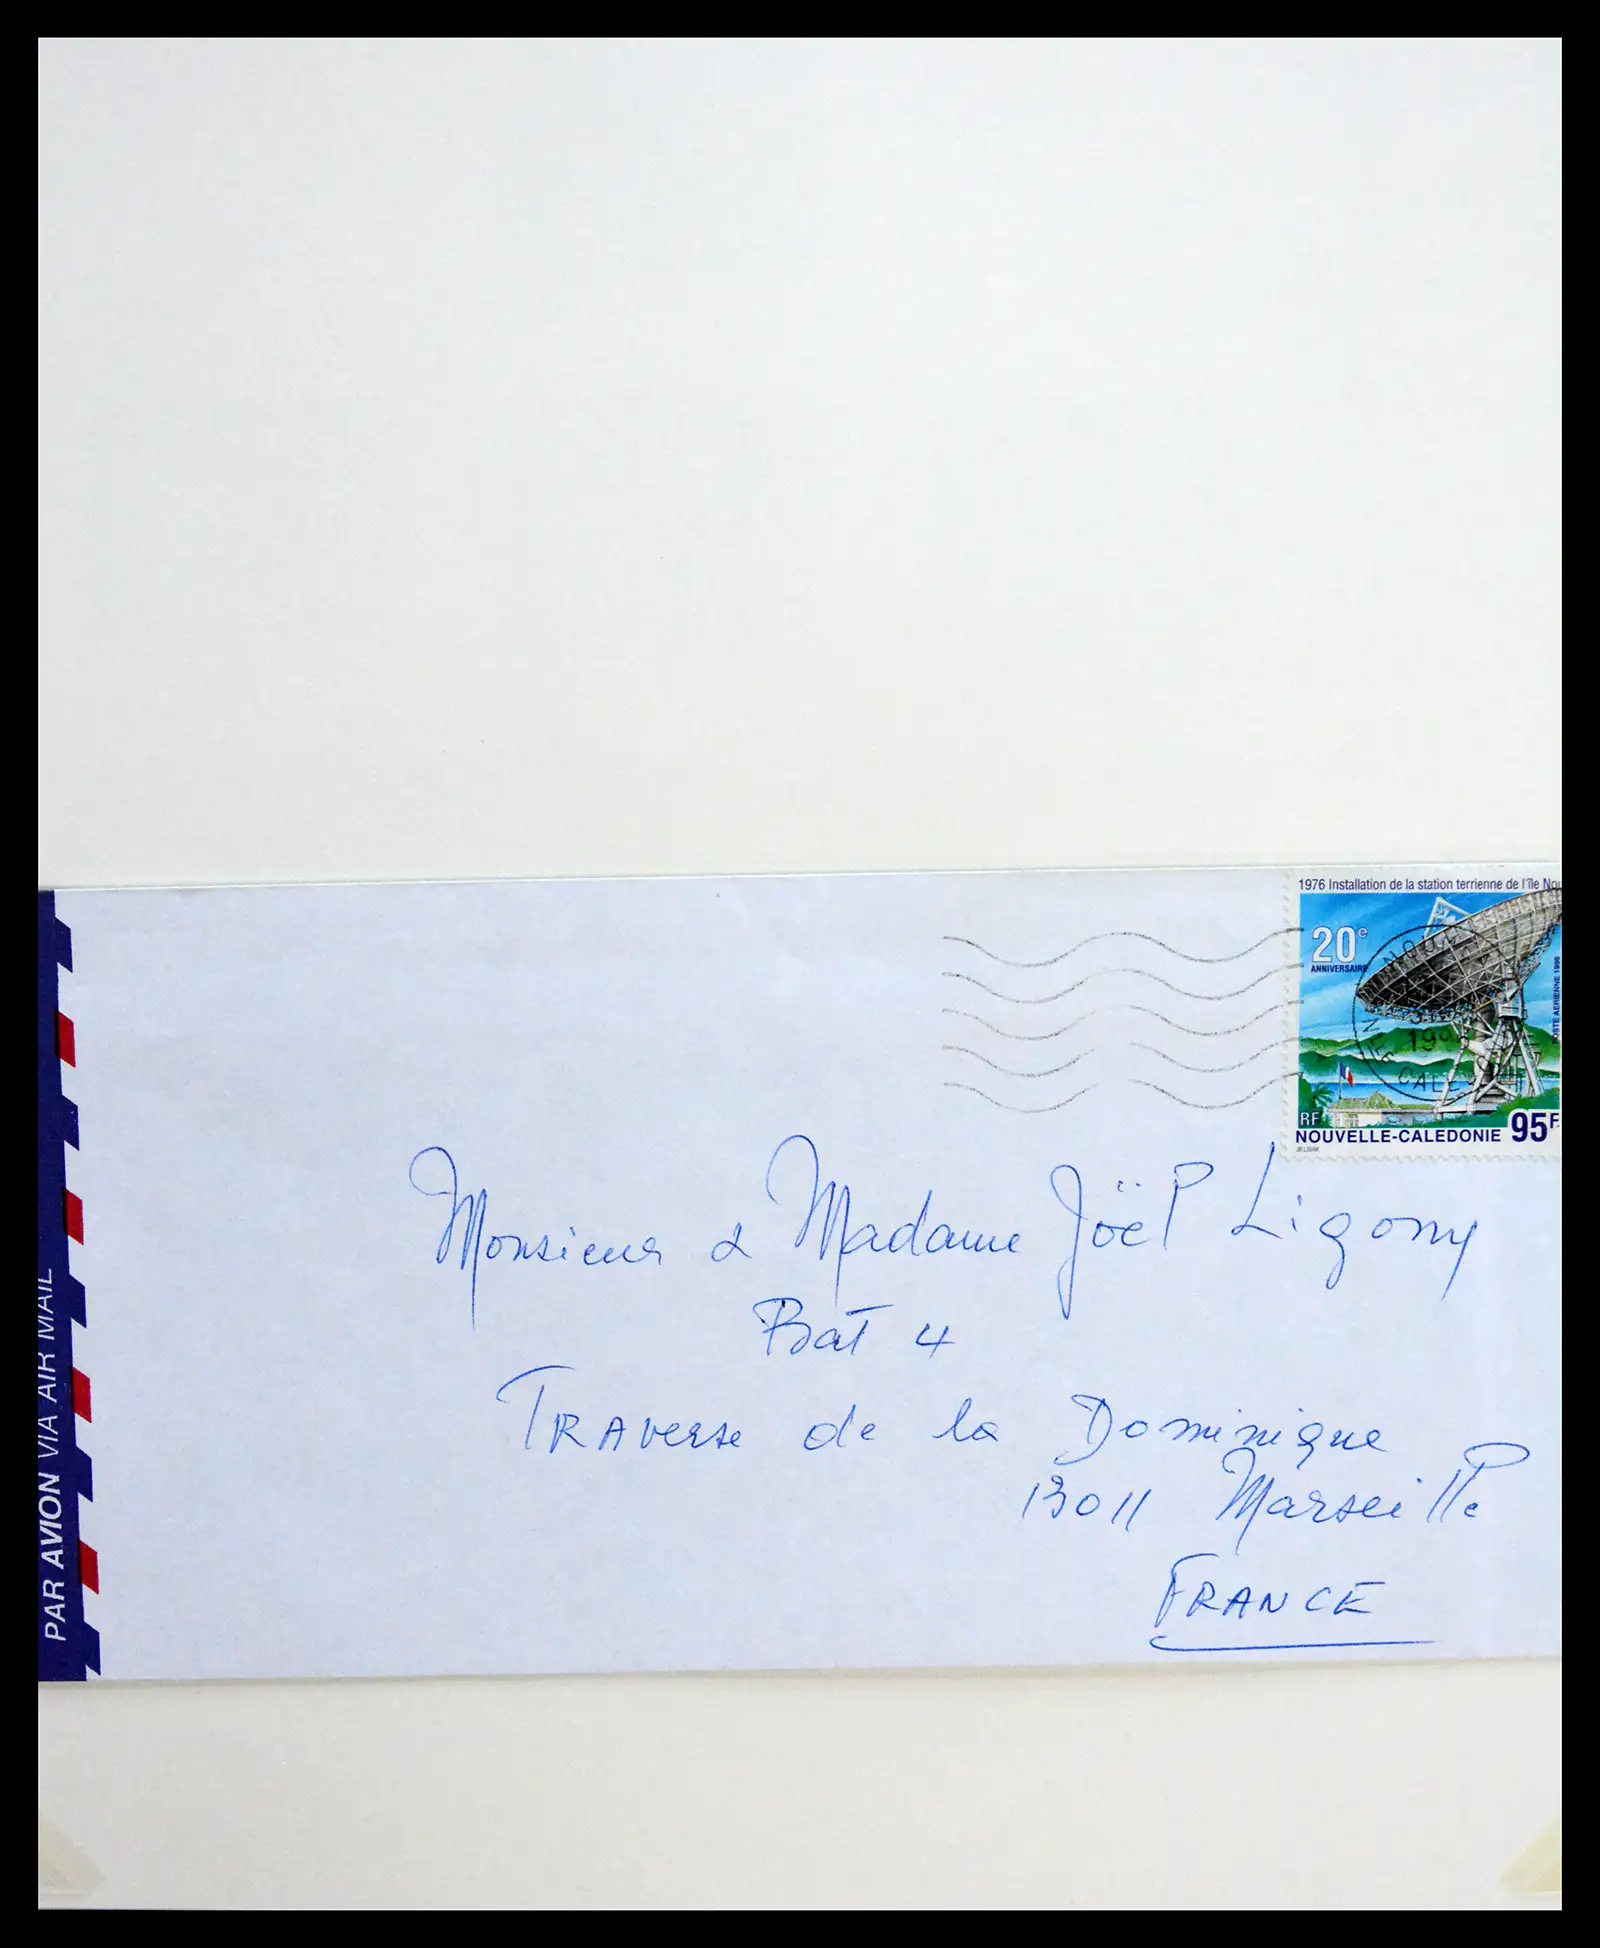 1976 Installation de la station terrienne de l'île Nou
20e
ANNIVERSAIRE
POSTE AERIENNE 1996
RF
NOUVELLE-CALEDONIE 95F
Monsieur & Madame Joël Ligony
Bat 4
Traverse de la Dominique
13011 Marseille
FRANCE
PAR AVION VIA AIR MAIL